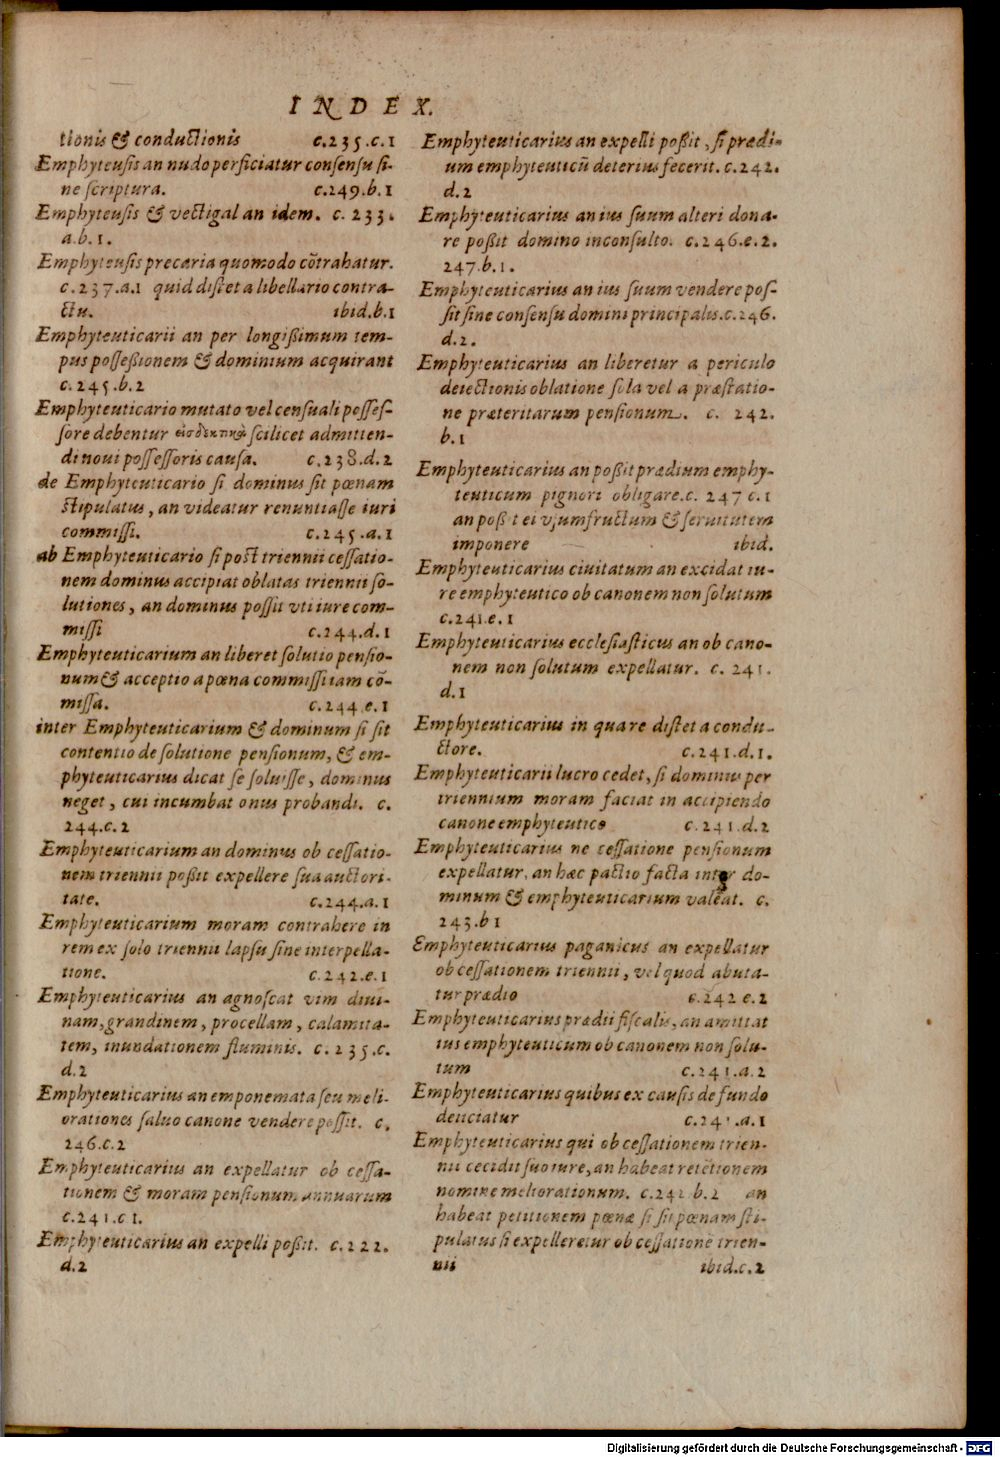 INDEX.
tionis & conductionis c.235.c.1
Emphyteusis an nudo perficiatur consensu si-
ne scriptura. c.249.b.1
Emphyteusis & vectigal an idem. c. 233.
a.b.1.
Emphyteusis precaria quomodo cõtrahatur.
c.237.a.1 quid distet a libellario contra-
ctu. ibid.b.1
Emphyteuticarii an per longißimum tem-
pus posseßionem & dominium acquirant
c.245.b.2
Emphyteuticario mutato vel censuali posses-
sore debentur εἰσδεκτικὰ scilicet admitten-
di noui possessoris causa. c.238.d.2
de Emphyteuticario si dominus sit pœnam
stipulatus, an videatur renuntiasse iuri
commissi. c.245.a.1
ab Emphyteuticario si post triennii cessatio-
nem dominus accipiat oblatas triennii so-
lutiones, an dominus possit vti iure com-
missi c.244.d.1
Emphyteuticarium an liberet solutio pensio-
num & acceptio a pœna commissi iam cõ-
missa. c.244.e.1
inter Emphyteuticarium & dominum si sit
contentio de solutione pensionum, & em-
phyteuticarius dicat se soluisse, dominus
neget, cui incumbat onus probandi. c.
244.c.2
Emphyteuticarium an dominus ob cessatio-
nem triennii poßit expellere sua auctori-
tate. c.244.a.1
Emphyteuticarium moram contrahere in
rem ex solo triennii lapsu sine interpella-
tione. c.242.e.1
Emphyteuticarius an agnoscat vim diui-
nam, grandinem, procellam, calamita-
tem, inundationem fluminis. c.235.c.
d.2
Emphyteuticarius an emponemata seu meli-
orationes saluo canone vendere possit. c.
246.c.2
Emphyteuticarius an expellatur ob cessa-
tionem & moram pensionum annuarum
c.241.c 1.
Emphyteuticarius an expelli poßit. c.222.
d.2
Emphyteuticarius an expelli poßit, si prædi-
um emphyteuticũ deterius fecerit. c.242.
d.2
Emphyteuticarius an ius suum alteri dona-
re poßit domino inconsulto. c.246.e.2.
247.b.1.
Emphyteuticarius an ius suum vendere pos-
sit sine consensu domini principalis. c.246.
d.2.
Emphyteuticarius an liberetur a periculo
detectionis oblatione sola vel a præstatio-
ne præteritarum pensionum. c. 242.
b.1
Emphyteuticarius an poßit prædium emphy-
teuticum pignori obligare. c. 247 c.1
an poßit ei vsumfructum & seruitutem
imponere ibid.
Emphyteuticarius ciuitatum an excidat iu-
re emphyteutico ob canonem non solutum
c.241.e.1
Emphyteuticarius ecclesiasticus an ob cano-
nem non solutum expellatur. c. 241.
d.1
Emphyteuticarius in qua re distet a condu-
ctore. c.241.d.1.
Emphyteuticarii lucro cedet, si dominus per
triennium moram faciat in accipiendo
canone emphyteutico c.241.d.2
Emphyteuticarius ne cessatione pensionum
expellatur, an hæc pactio facta inter do-
minum & emphyteuticarium valeat. c.
243.b 1
Emphyteuticarius paganicus an expellatur
ob cessationem triennii, vel quod abuta-
tur prædio c.242 e.2
Emphyteuticarius prædii fiscalis, an amittat
ius emphyteuticum ob canonem non solu-
tum c.241.a.2
Emphyteuticarius quibus ex causis de fundo
deiiciatur c.241.a.1
Emphyteuticarius qui ob cessationem trien-
nii cecidit suo iure, an habeat retẽtionem
nomine meliorationum. c.242 b.2 an
habeat petitionem pœnæ si sit pœnam sti-
pulatus si expelleretur ob cessationẽ trien-
nii ibid.c.2
Digitalisierung gefördert durch die Deutsche Forschungsgemeinschaft - DFG